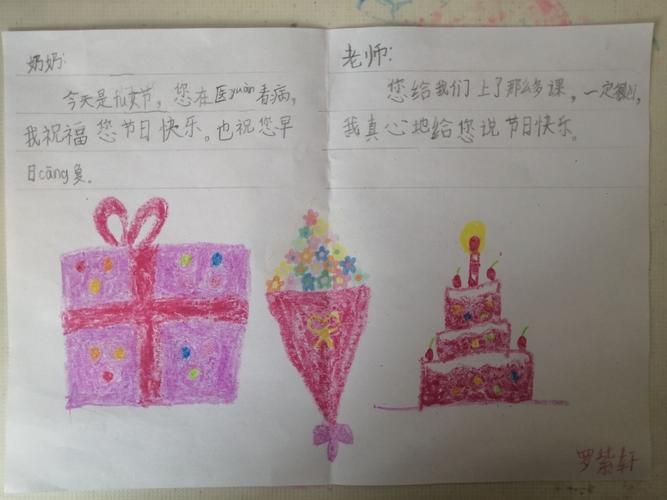 奶奶:
今天是扎支节,您在医yuàn看病,
我祝福您节日快乐。也祝您早
日cāng复.
老师:
您给我们上了那么多课,一定很
我真心地给您说节日快乐。
罗紫轩